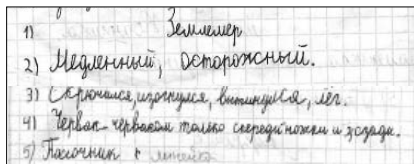 1) Землемер
2) Медленный, осторожный.
3) Скрючился, изогнулся, вытянулся, лёг.
4) Червяк червяком только спереди ножки и сзади.
5) Пасочник +